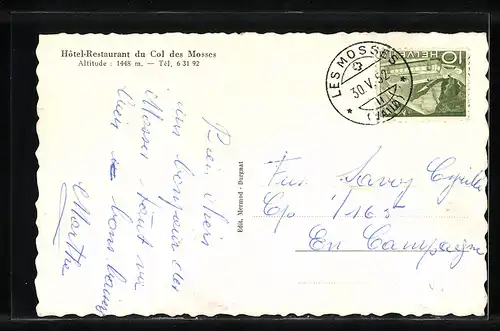 Hôtel-Restaurant du Col des Mosses
Altitude : 1448 m. — Tél. 6 31 92
LES MOSSES
30.V.52
(VAUD)
HELVETIA
10
Edit. Mermod - Burgnat
un bonjour des
Mosses
bien bons baisers
Marthe
Fus. Savoy Cyrille
Cp 1/165
En Campagne